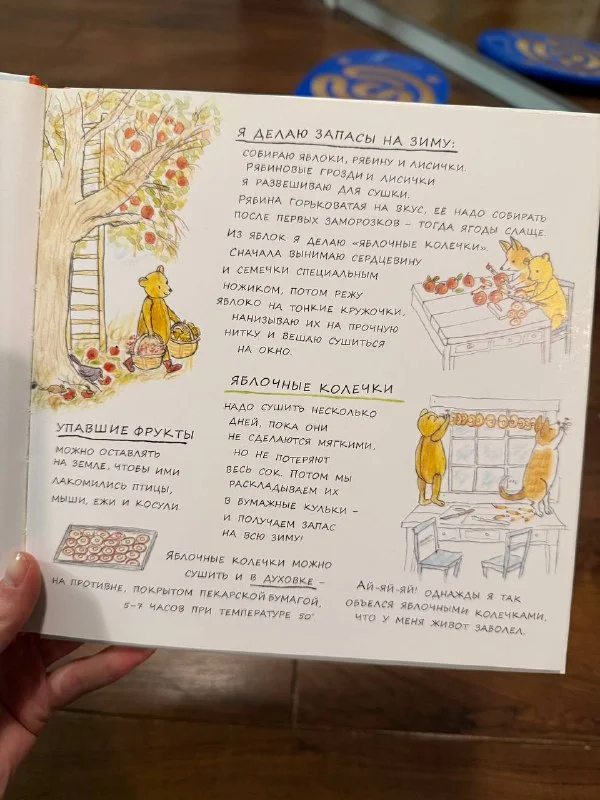 Я ДЕЛАЮ ЗАПАСЫ НА ЗИМУ:
СОБИРАЮ ЯБЛОКИ, РЯБИНУ И ЛИСИЧКИ.
РЯБИНОВЫЕ ГРОЗДИ И ЛИСИЧКИ
Я РАЗВЕШИВАЮ ДЛЯ СУШКИ.
РЯБИНА ГОРЬКОВАТАЯ НА ВКУС, ЕЁ НАДО СОБИРАТЬ
ПОСЛЕ ПЕРВЫХ ЗАМОРОЗКОВ – ТОГДА ЯГОДЫ СЛАЩЕ.
ИЗ ЯБЛОК Я ДЕЛАЮ «ЯБЛОЧНЫЕ КОЛЕЧКИ».
СНАЧАЛА ВЫНИМАЮ СЕРДЦЕВИНУ
И СЕМЕЧКИ СПЕЦИАЛЬНЫМ
НОЖИКОМ, ПОТОМ РЕЖУ
ЯБЛОКО НА ТОНКИЕ КРУЖОЧКИ,
НАНИЗЫВАЮ ИХ НА ПРОЧНУЮ
НИТКУ И ВЕШАЮ СУШИТЬСЯ
НА ОКНО.
ЯБЛОЧНЫЕ КОЛЕЧКИ
НАДО СУШИТЬ НЕСКОЛЬКО
ДНЕЙ, ПОКА ОНИ
НЕ СДЕЛАЮТСЯ МЯГКИМИ,
НО НЕ ПОТЕРЯЮТ
ВЕСЬ СОК. ПОТОМ МЫ
РАСКЛАДЫВАЕМ ИХ
В БУМАЖНЫЕ КУЛЬКИ –
И ПОЛУЧАЕМ ЗАПАС
НА ВСЮ ЗИМУ!
УПАВШИЕ ФРУКТЫ
МОЖНО ОСТАВЛЯТЬ
НА ЗЕМЛЕ, ЧТОБЫ ИМИ
ЛАКОМИЛИСЬ ПТИЦЫ,
МЫШИ, ЕЖИ И КОСУЛИ.
ЯБЛОЧНЫЕ КОЛЕЧКИ МОЖНО
СУШИТЬ И В ДУХОВКЕ –
НА ПРОТИВНЕ, ПОКРЫТОМ ПЕКАРСКОЙ БУМАГОЙ,
5–7 ЧАСОВ ПРИ ТЕМПЕРАТУРЕ 50°
АЙ-ЯЙ-ЯЙ! ОДНАЖДЫ Я ТАК
ОБЪЕЛСЯ ЯБЛОЧНЫМИ КОЛЕЧКАМИ,
ЧТО У МЕНЯ ЖИВОТ ЗАБОЛЕЛ.